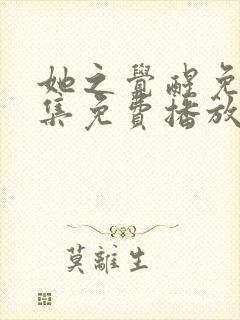 她之覺醒免
集免費播放
莫離生